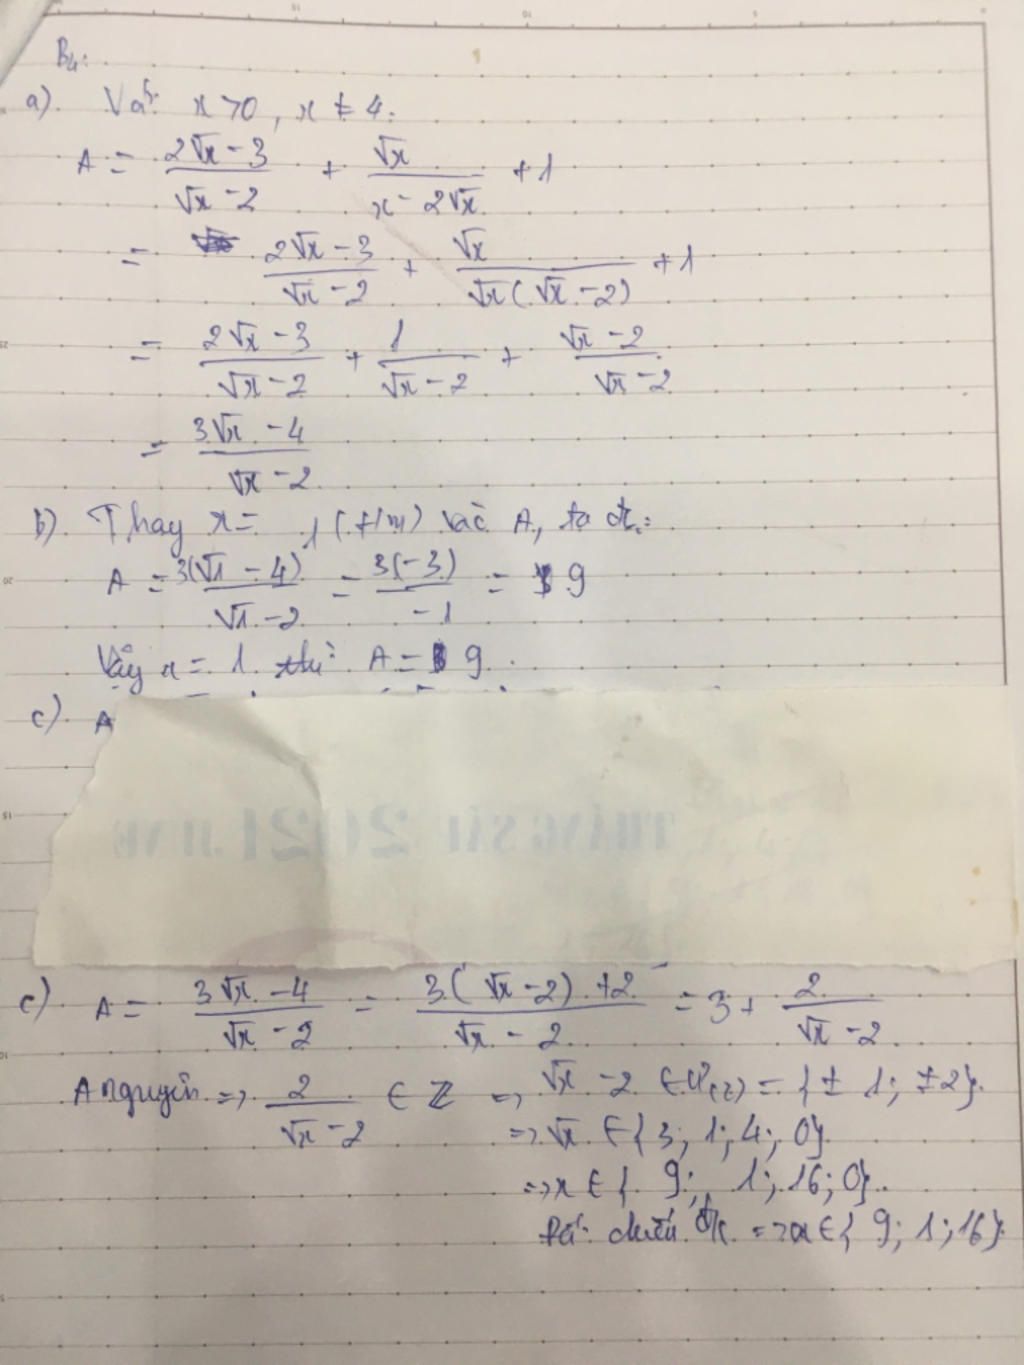 B4:
a). Với x > 0, x ≠ 4.
A = (2√x - 3)/(√x - 2) + √x/(x - 2√x) + 1
= (2√x - 3)/(√x - 2) + √x/(√x(√x - 2)) + 1
= (2√x - 3)/(√x - 2) + 1/(√x - 2) + (√x - 2)/(√x - 2)
= (3√x - 4)/(√x - 2)
b). Thay x = 1 (t/m) vào A, ta đc:
A = 3(√1 - 4)/(√1 - 2) = 3(-3)/(-1) = 9
Vậy x = 1 thì A = 9.
c). A
THÁNG SÁU 2021 JUNE
c) A = (3√x - 4)/(√x - 2) = (3(√x - 2) + 2)/(√x - 2) = 3 + 2/(√x - 2)
A nguyên => 2/(√x - 2) ∈ Z => √x - 2 ∈ Ư(2) = {± 1; ±2}.
=> √x ∈ {3; 1; 4; 0}.
=> x ∈ {9; 1; 16; 0}.
Đối chiếu đk => x ∈ {9; 1; 16}.